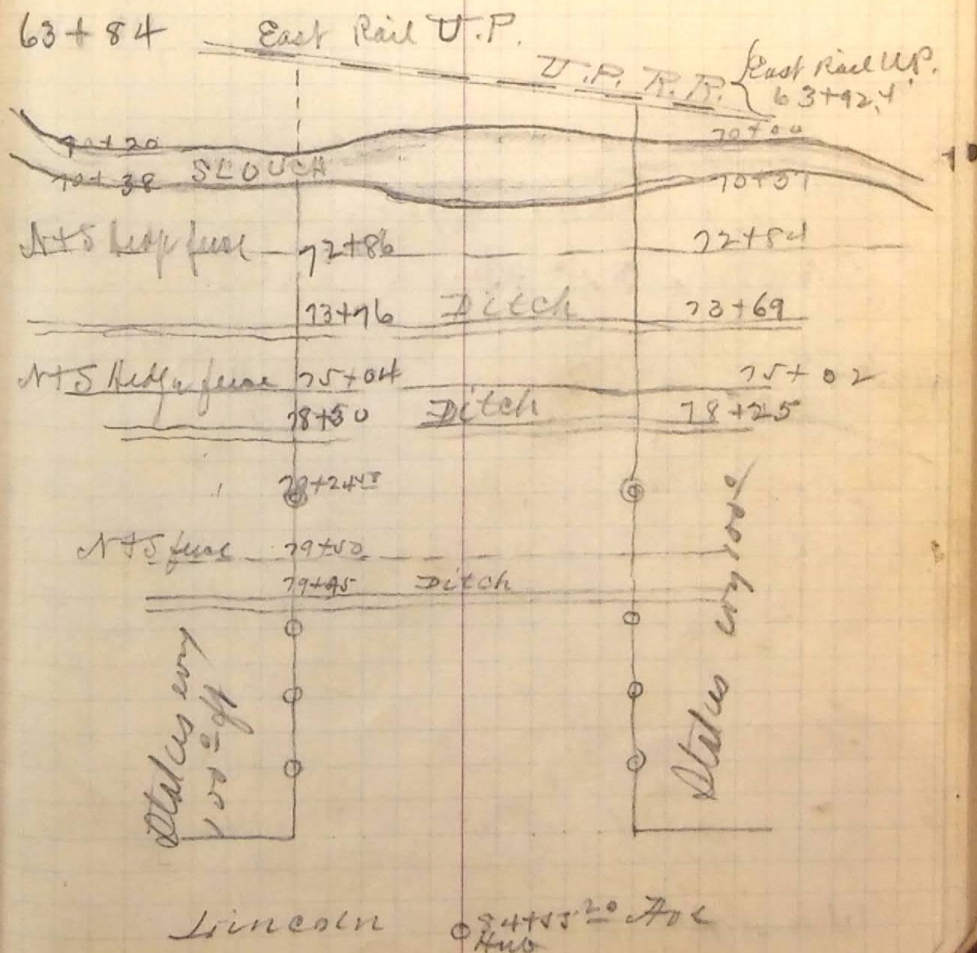 63+84 East Rail U.P.
U.P. R.R. East Rail U.P.
63+92.4
70+20 70+00
70+38 SLOUGH 70+37
N+S Hedge fence 72+86 72+84
73+76 Ditch 73+69
N+S Hedge fence 75+04 75+02
78+30 Ditch 78+25
+24
N+S fence 79+50
79+95 Ditch
Stakes every
100° off
Stakes every 100°
Lincoln 84+55 20 Ave
Hub